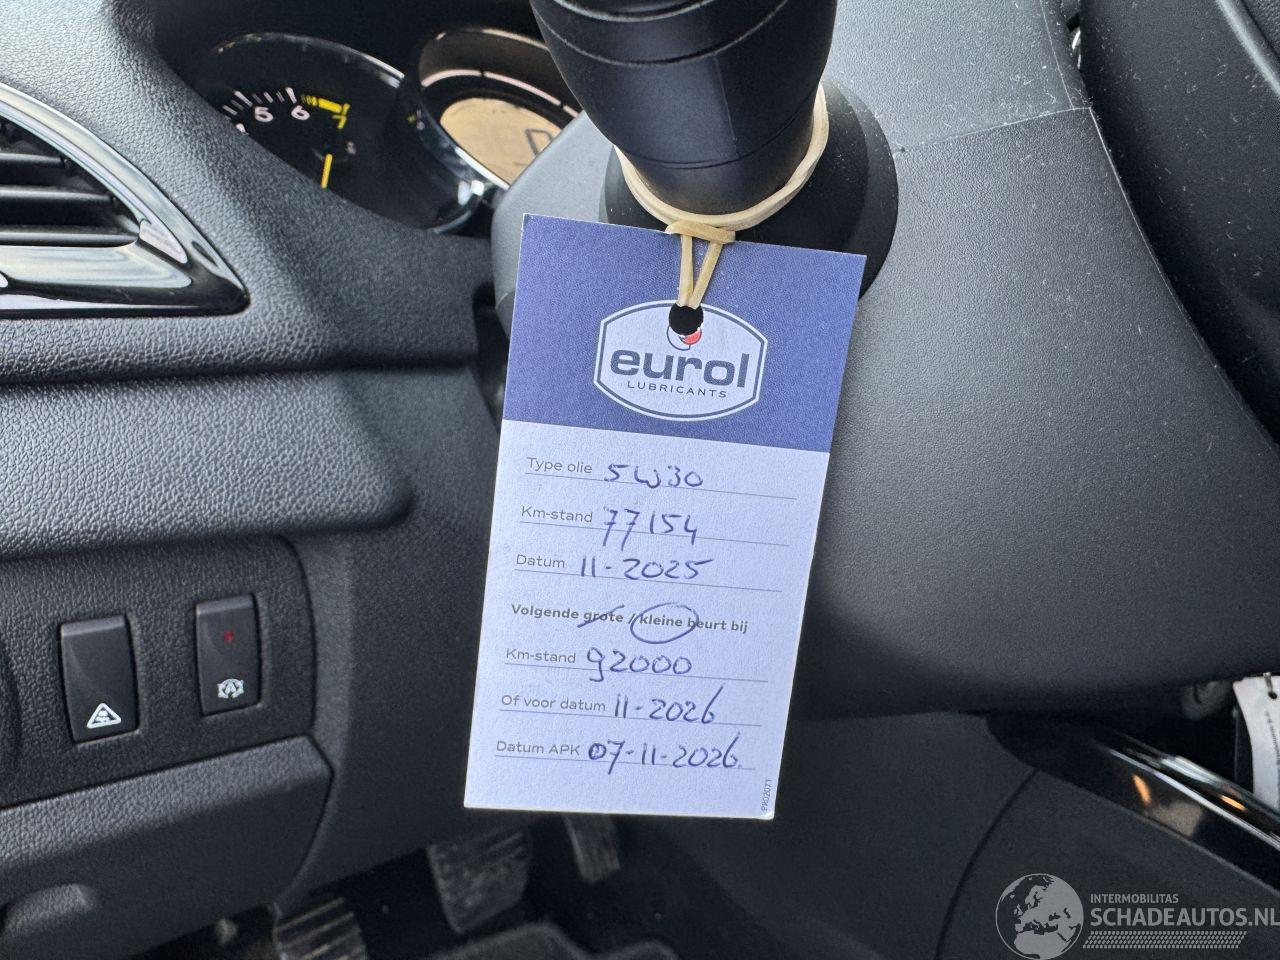 5 6 7
eurol
LUBRICANTS
Type olie 5W30
Km-stand 77154
Datum 11-2025
Volgende grote / kleine beurt bij
Km-stand 92000
Of voor datum 11-2026
Datum APK 07-11-2026.
PK02071
INTERMOBILITAS
SCHADEAUTOS.NL